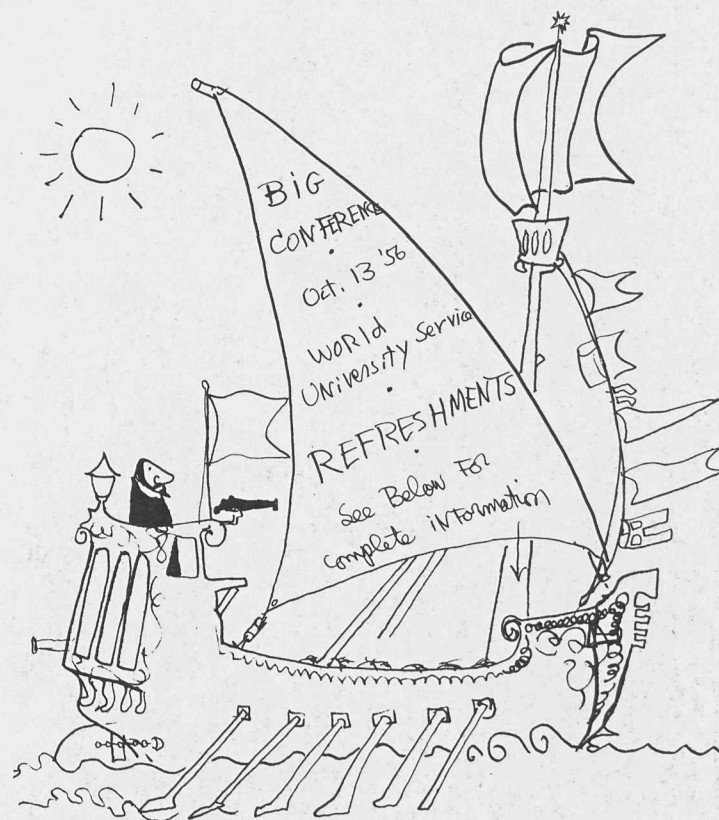 BiG
CONFERENCE
•
Oct. 13 '56
•
WORld
UNiversity Service
•
REFRESHMENTS
•
See Below For
complete iNFormation